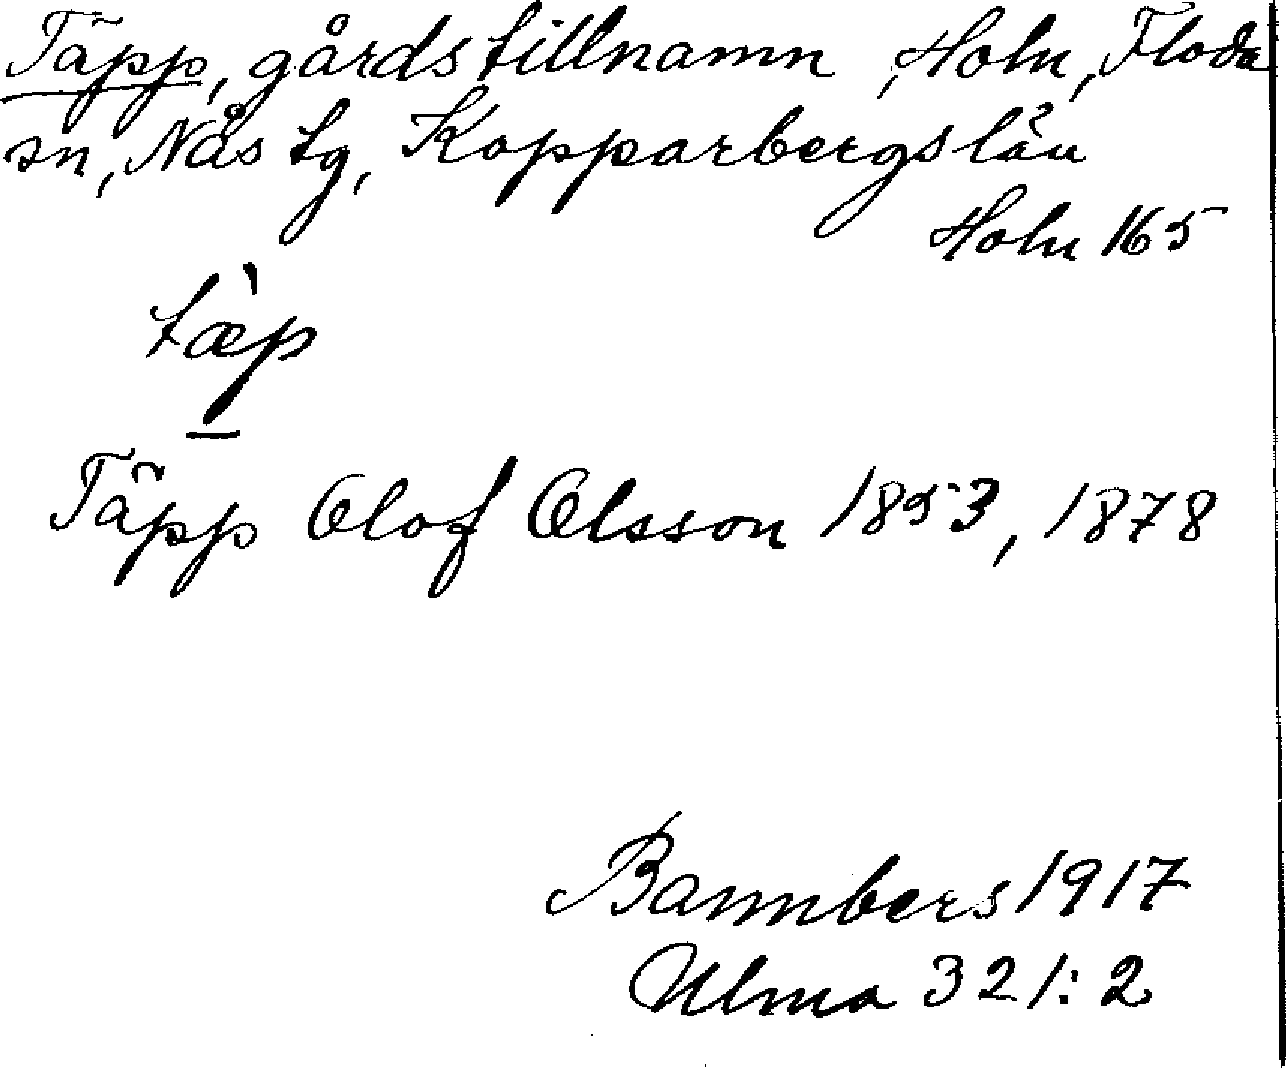 Täpp, gårdstillnamn, Holn, Floda
sn, Nås tg, Kopparbergs län
Holn 165
tæ̀p
Täpp Olof Olsson 1853, 1878
Bannbers 1917
Ulma 321:2